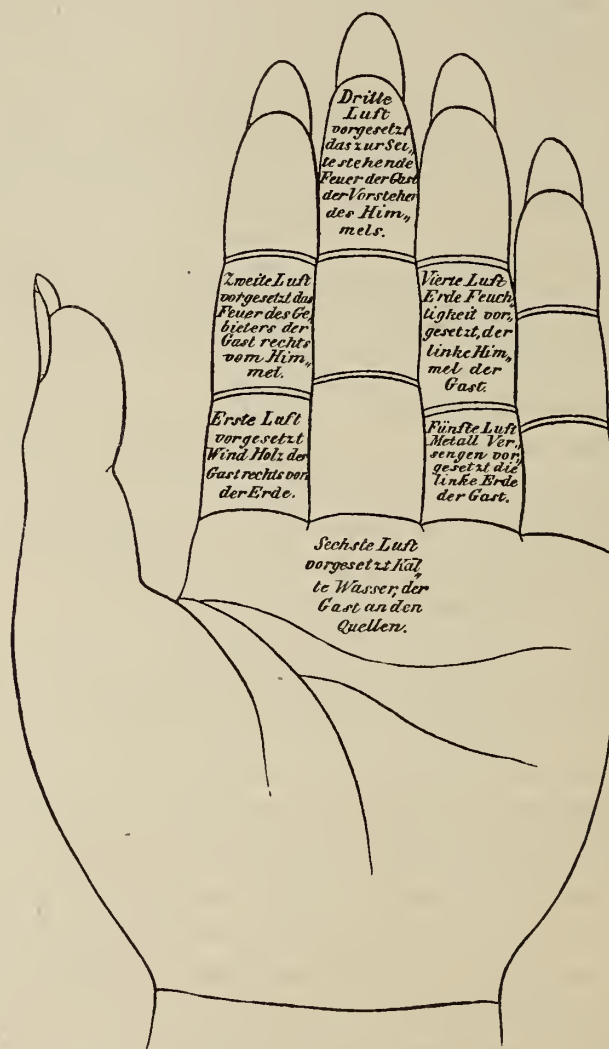 Dritte
Luft
vorgesetzt
das zur Sei„
te stehende
Feuer der Gast
der Vorsteher
des Him„
mels.
Zweite Luft
vorgesetzt das
Feuer des Ge„
bieters der
Gast rechts
vom Him„
mel.
Vierte Luft
Erde Feuch„
tigkeit vor„
gesetzt, der
linke Him„
mel der
Gast.
Erste Luft
vorgesetzt
Wind Holz der
Gast rechts von
der Erde.
Fünfte Luft
Metall Ver„
sengen vor„
gesetzt die
linke Erde
der Gast.
Sechste Luft
vorgesetzt Käl„
te Wasser, der
Gast an den
Quellen.